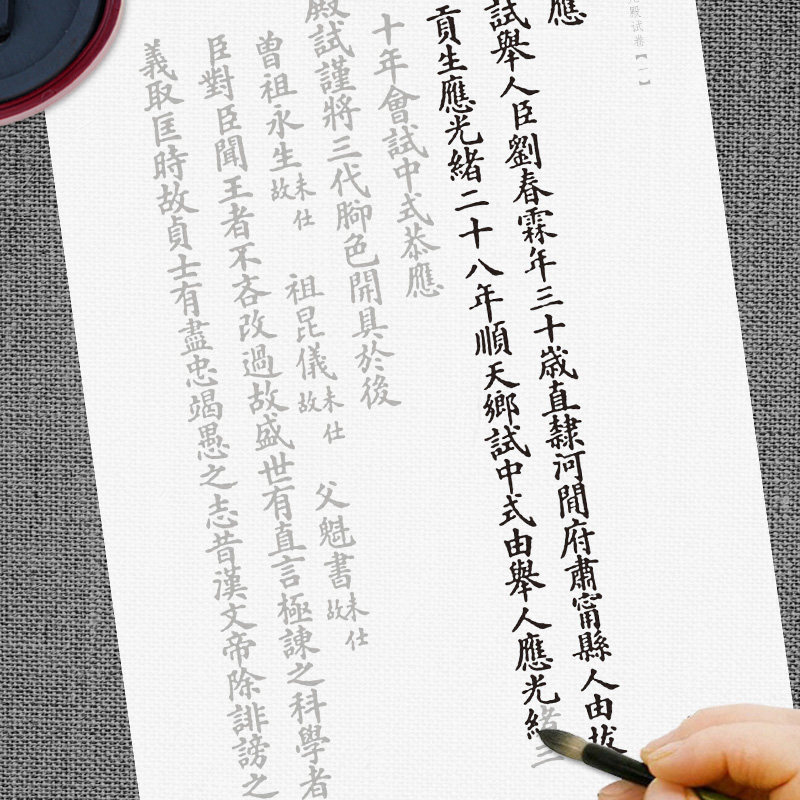 殿試卷【一】
應
試舉人臣劉春霖年三十歲直隸河間府肅甯縣人由拔
貢生應光緒二十八年順天鄉試中式由舉人應光緒三
十年會試中式恭應
殿試謹將三代腳色開具於後
曾祖永生未仕故 祖昆儀未仕故 父魁書未仕故
臣對臣聞王者不吝改過故盛世有直言極諫之科學者
義取匡時故貞士有盡忠竭愚之志昔漢文帝除誹謗之